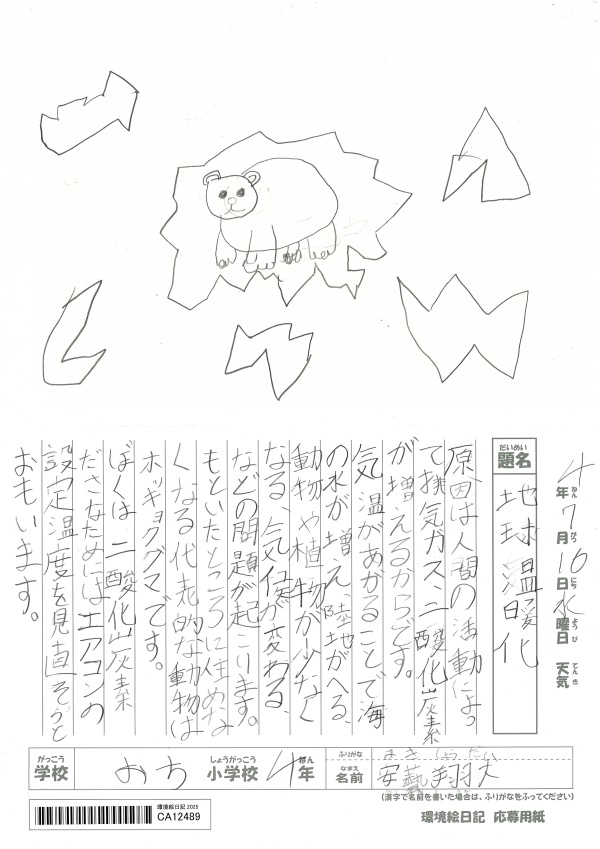 4年7月16日水曜日 天気
ねん がつ にち ようび てんき
だいめい
題名 地球温暖化
原因は人間の活動によっ
て換気ガス、二酸化炭素
が増えるからです。
気温があがることで海
の水が増え、陸地がへる、
動物や植物が少なく
なる、気候が変わる、
などの問題が起こります。
もといたところに住めな
くなる代表的な動物は
ホッキョクグマです。
ぼくは二酸化炭素
ださなためにはエアコンの
設定温度を見直そうと
おもいます。
がっこう しょうがっこう ねん ふりがな あき
学校 おち 小学校 4年
なまえ
名前 安藝翔
(漢字で名前を書いた場合は、ふりがなをふってください)
環境絵日記 2025
CA12489
環境絵日記 応募用紙